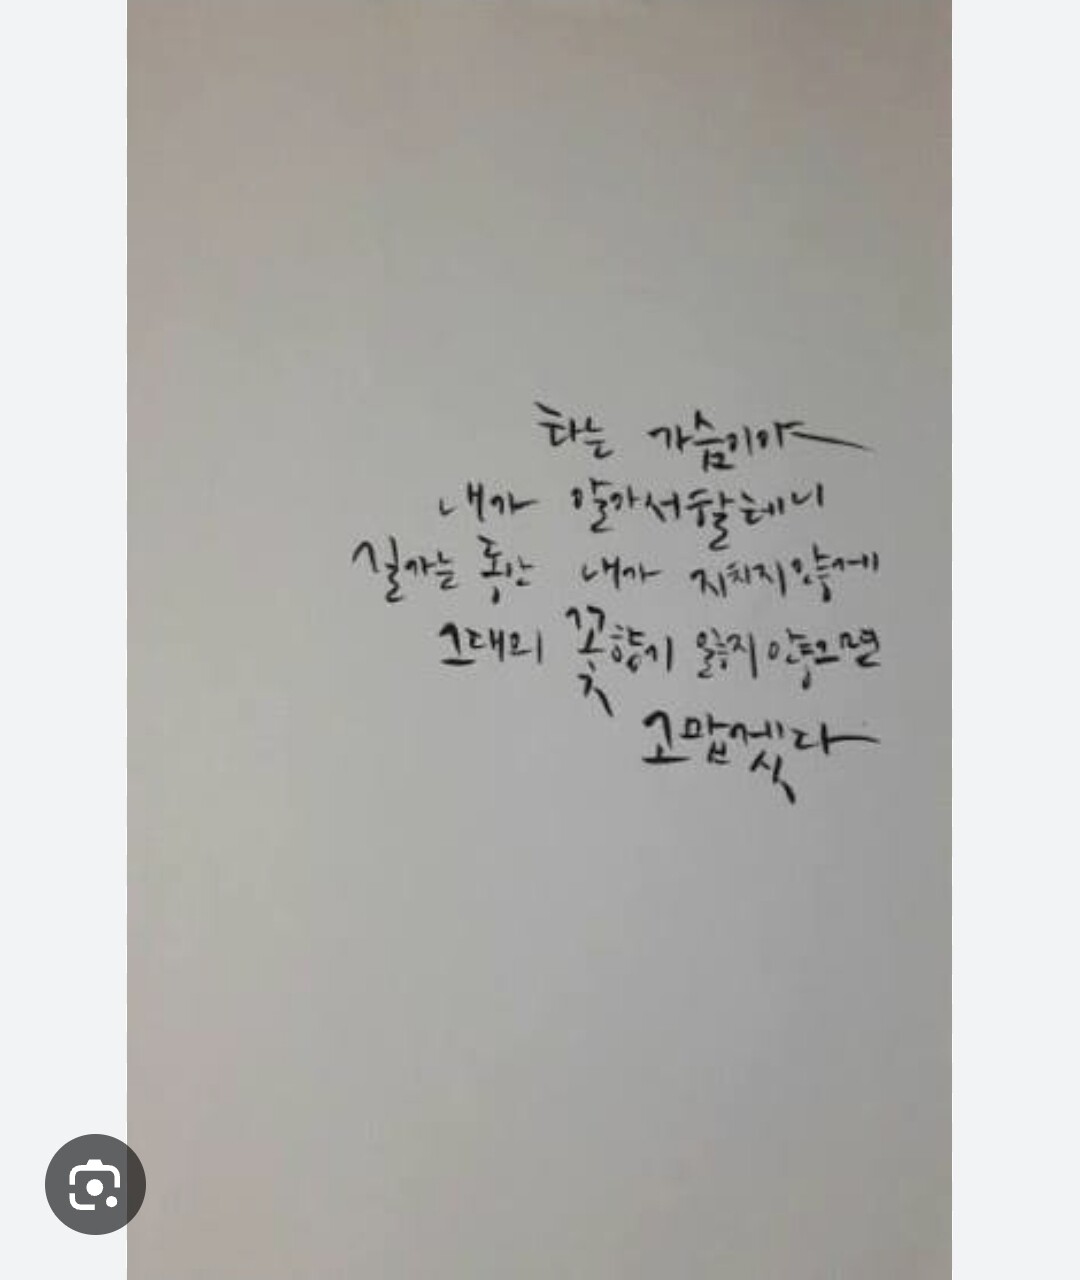 타는 가슴이야
내가 알아서할테니
길가는 동안 내가 지치지않게
그대의 꽃향기 잃지않으면
고맙겠다